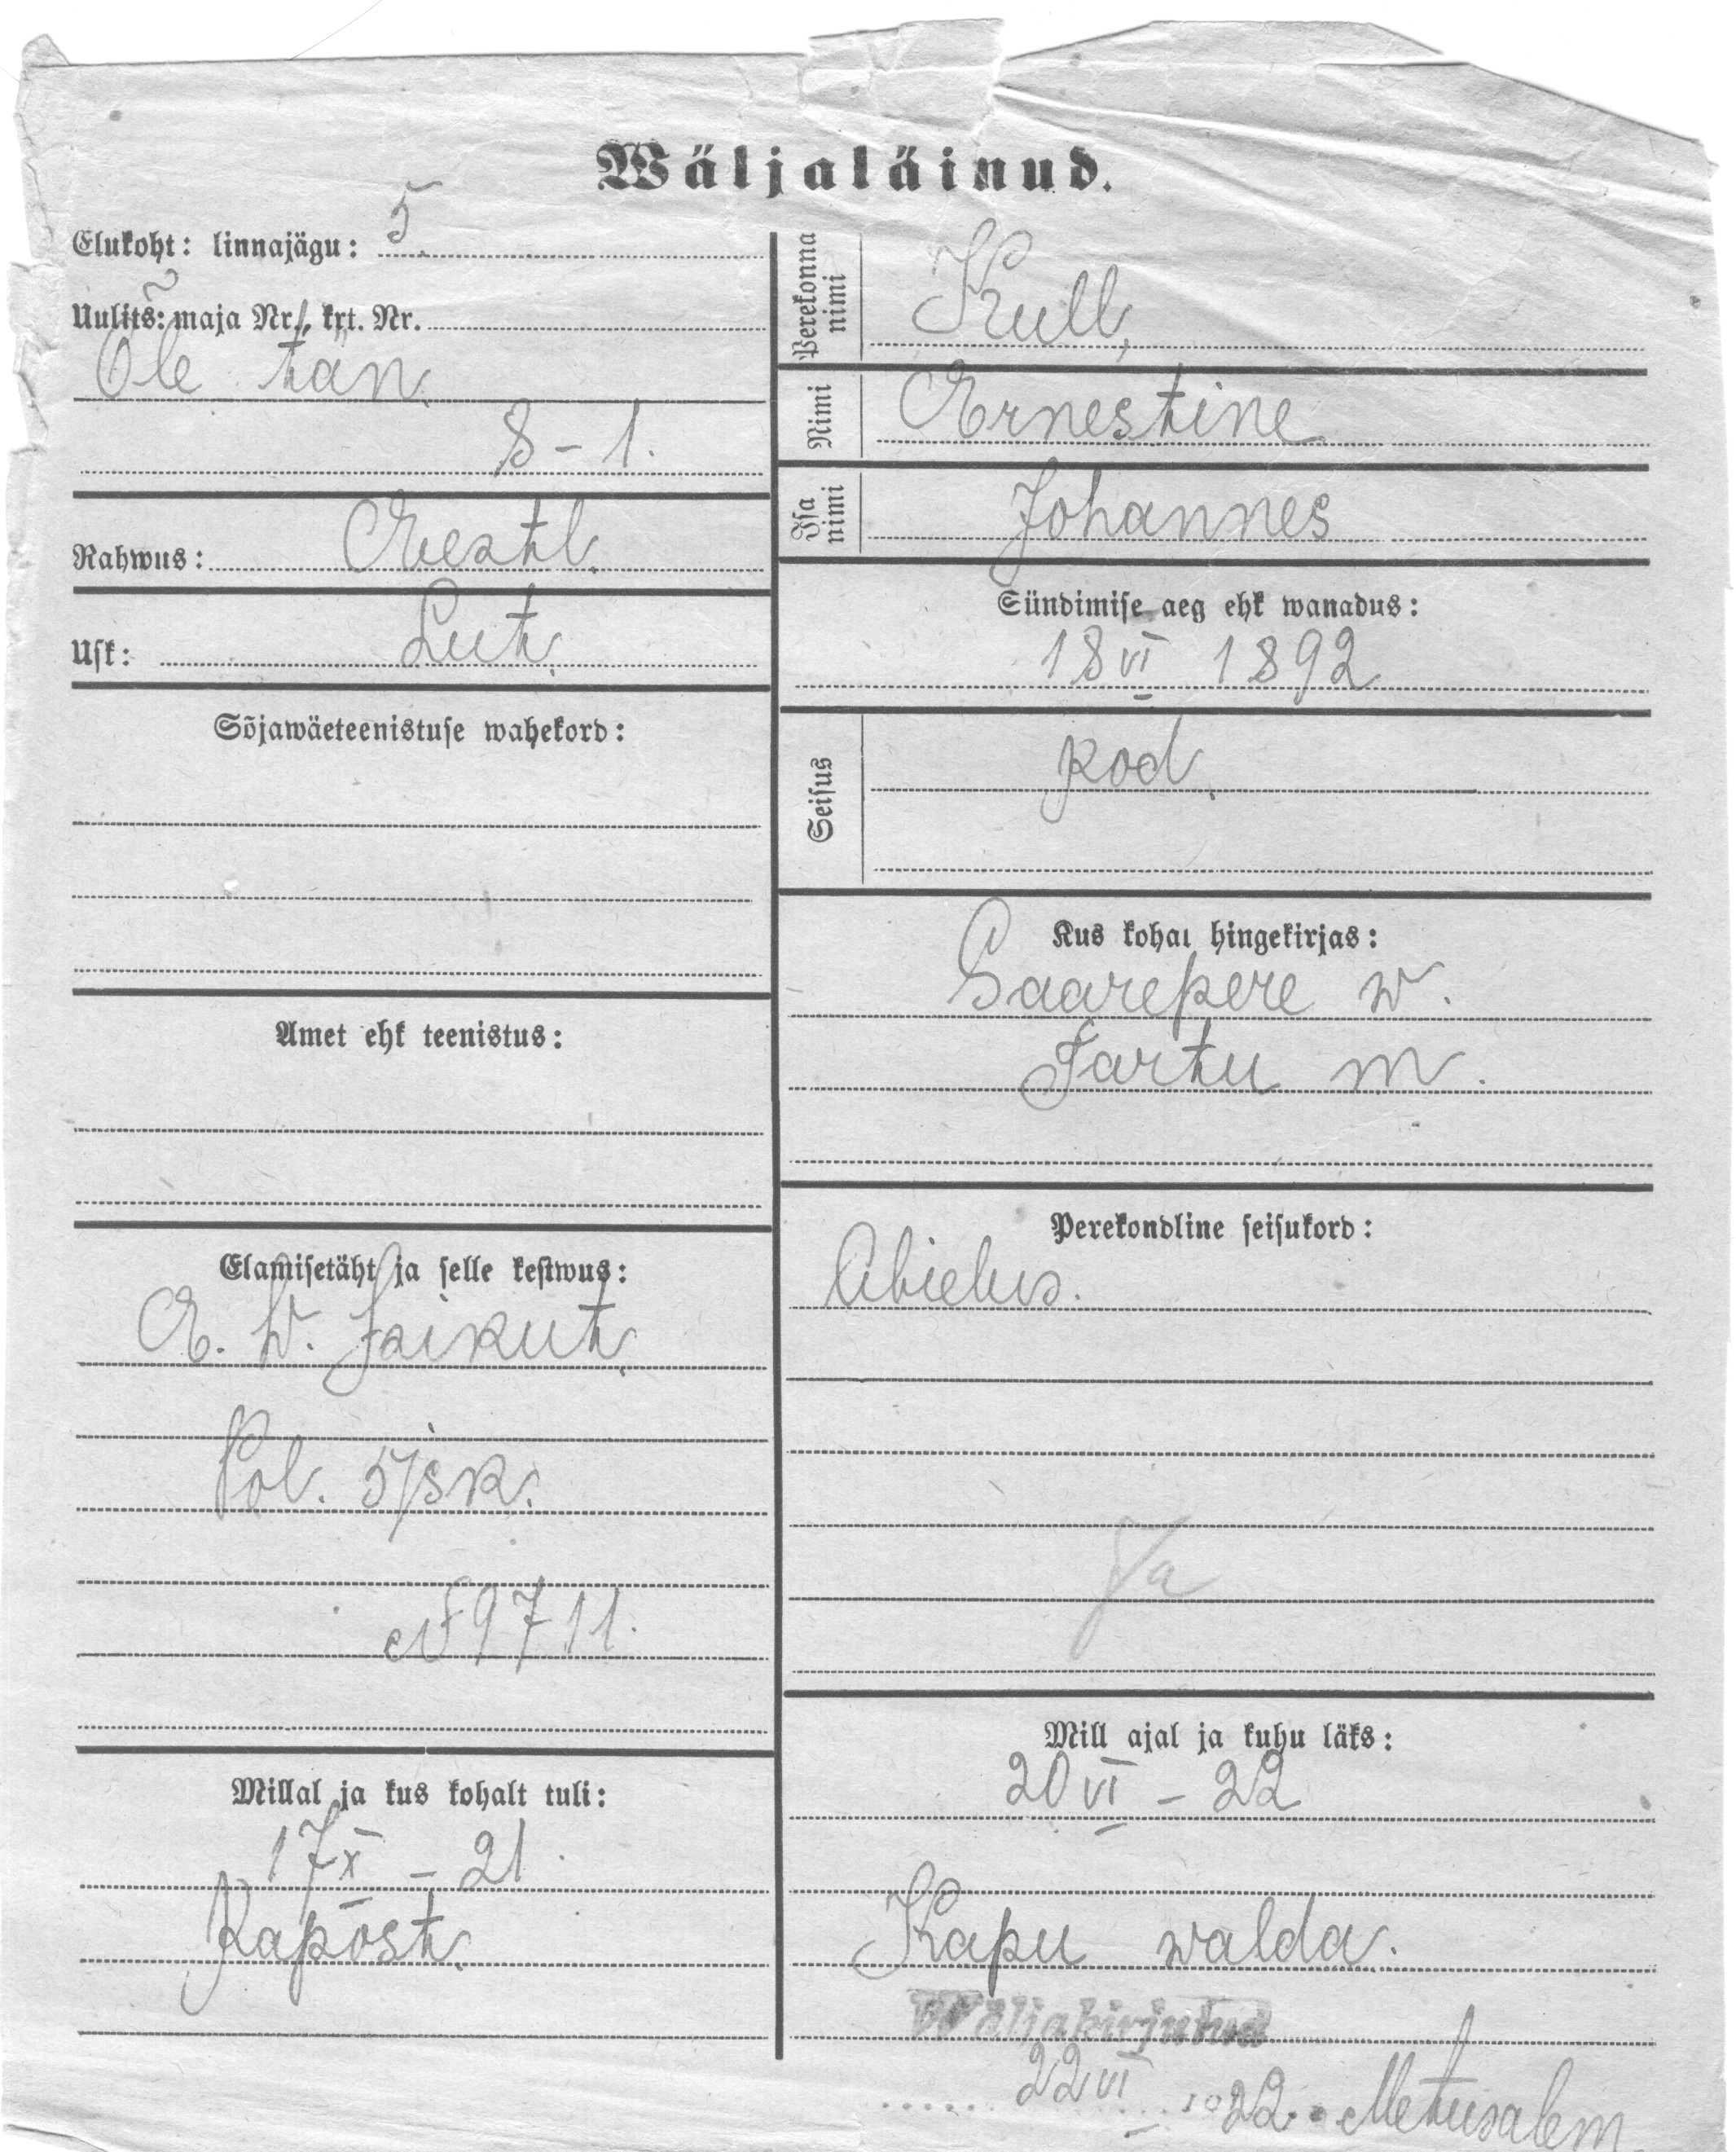 Wäljaläinud.
Elukoht: linnajägu: 5.
Uulits: maja Nr., krt. Nr.
Õle tän.
8 – 1.
Rahwus: Eestl.
Usk: Lut.
Sõjawäeteenistuse wahekord:
Amet ehk teenistus:
Elamisetäht ja selle kestwus:
E. W. Isikut.
Pol. 5/jsk.
№ 9711.
Millal ja kus kohalt tuli:
17 X – 21.
Perekonna nimi Kull,
Nimi Ernestine
Isa nimi Johannes
Sündimise aeg ehk wanadus:
18 VI 1892
Seisus kod.
Kus kohat hingekirjas:
Saarepere w.
Tartu m.
Perekondline seisukord:
Abielus.
Ja
Mill ajal ja kuhu läks:
20 VI – 22
Kapu walda.
Wäljakirjutud
22 VI 1922. Metusalem